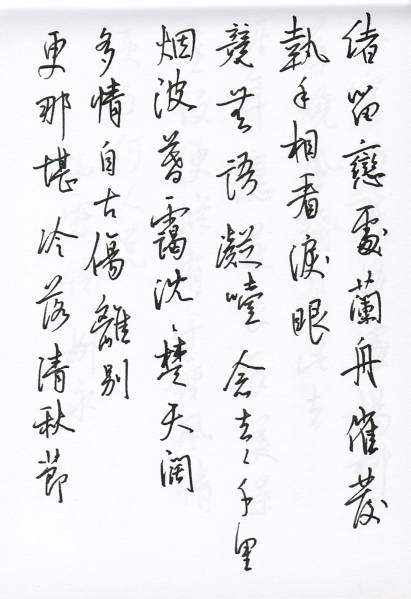 緒留戀處蘭舟催發
執手相看淚眼
競無語凝噎念去〻千里
烟波暮靄沈〻楚天闊
多情自古傷離别
更那堪冷落清秋節